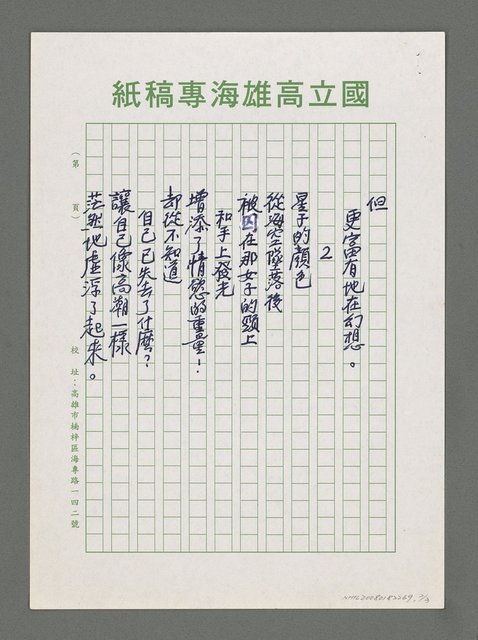 國立高雄海專稿紙
(第 頁)
但
更富有地在幻想。
2
星子的顏色
從海空墜落後
被囚在那女子的頸上
和手上發光
增添了情慾的重量！
却從不知道
自己已失去了什麼？
讓自己像高潮一樣
茫然地虛浮了起來。
校 址：高雄市楠梓區海專路一四二號
NMTL20080182269, 3/3